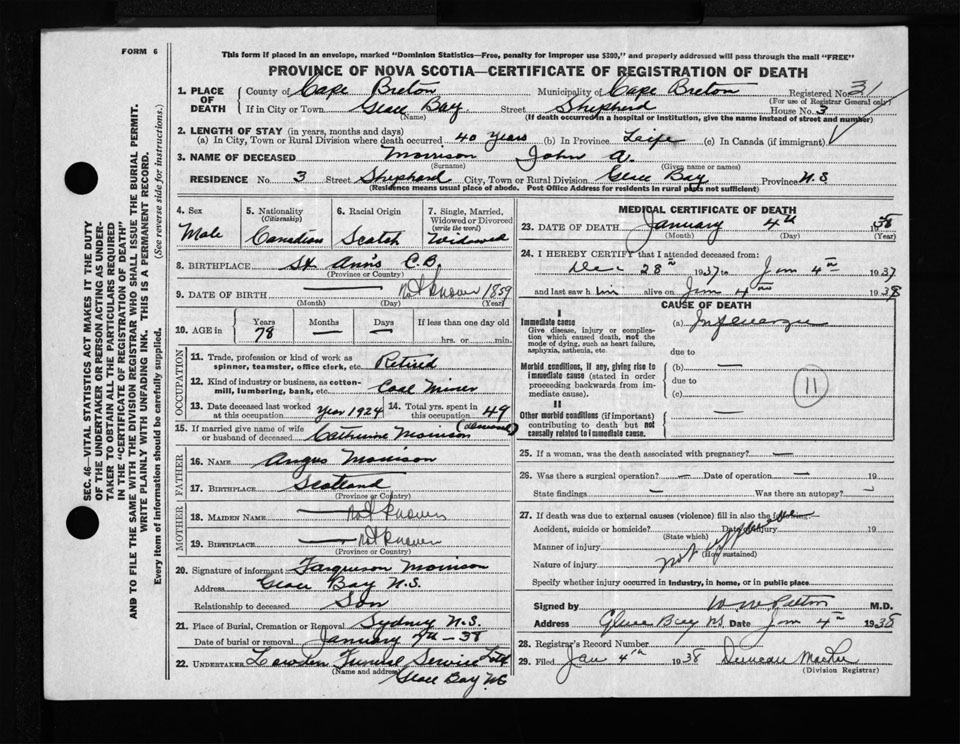 FORM 6
This form if placed in an envelope, marked "Dominion Statistics—Free, penalty for improper use $300," and properly addressed will pass through the mail "FREE"
PROVINCE OF NOVA SCOTIA—CERTIFICATE OF REGISTRATION OF DEATH
1. PLACE OF DEATH County of Cape Breton Municipality of Cape Breton Registered No. 3
(For use of Registrar General only)
If in City or Town Glace Bay Street Shepherd House No. 3
(Name) (If death occurred in a hospital or institution, give the name instead of street and number)
2. LENGTH OF STAY (in years, months and days)
(a) In City, Town or Rural Division where death occurred 40 years (b) In Province Life (c) In Canada (if immigrant)
3. NAME OF DECEASED Morrison John A.
(Surname) (Given name or names)
RESIDENCE No. 3 Street Shepherd City, Town or Rural Division Glace Bay Province N.S
(Residence means usual place of abode. Post Office Address for residents in rural parts not sufficient)
4. Sex Male
5. Nationality (Citizenship) Canadian
6. Racial Origin Scotch
7. Single, Married, Widowed or Divorced (write the word) Widowed
8. BIRTHPLACE St Ann's C.B.
(Province or Country)
9. DATE OF BIRTH — Not Known 1859
(Month) (Day) (Year)
10. AGE in Years 78 Months — Days — If less than one day old
hrs. or min.
OCCUPATION
11. Trade, profession or kind of work as spinner, teamster, office clerk, etc. Retired
12. Kind of industry or business, as cotton-mill, lumbering, bank, etc. Coal Miner
13. Date deceased last worked at this occupation Year 1924 14. Total yrs. spent in this occupation 49
15. If married give name of wife or husband of deceased Catherine Morrison (deceased)
FATHER
16. NAME Angus Morrison
17. BIRTHPLACE Scotland
(Province or Country)
MOTHER
18. MAIDEN NAME — Not Known
19. BIRTHPLACE — Not Known
(Province or Country)
20. Signature of informant Ferguson Morrison
Address Glace Bay N.S.
Relationship to deceased Son
21. Place of Burial, Cremation or Removal Sydney N.S.
Date of burial or removal January 7th - 38
22. UNDERTAKER Funeral Service Ltd
Glace Bay NS
MEDICAL CERTIFICATE OF DEATH
23. DATE OF DEATH January 4th 1938
(Month) (Day) (Year)
24. I HEREBY CERTIFY that I attended deceased from:
Dec 28th 1937 to Jan 4th 1937
and last saw him alive on Jan 4th 1938
CAUSE OF DEATH
I
Immediate cause
Give disease, injury or complication which caused death, not the mode of dying, such as heart failure, asphyxia, asthenia, etc.
(a) Influenza
due to
Morbid conditions, if any, giving rise to immediate cause (stated in order proceeding backwards from immediate cause).
(b) —
due to
(c)
11
II
Other morbid conditions (if important) contributing to death but not causally related to immediate cause.
—
25. If a woman, was the death associated with pregnancy? —
26. Was there a surgical operation? — Date of operation — 19
State findings — Was there an autopsy?
27. If death was due to external causes (violence) fill in also the following:
Accident, suicide or homicide? Date of injury 19
(State which)
Manner of injury
(How sustained)
Nature of injury
not applicable
Specify whether injury occurred in industry, in home, or in public place
Signed by M.D.
Address Glace Bay NS. Date Jan 4th 1938
28. Registrar's Record Number
29. Filed Jan 4th 1938 Duncan
(Division Registrar)
SEC. 46—VITAL STATISTICS ACT MAKES IT THE DUTY
OF THE UNDERTAKER OR PERSON ACTING AS UNDERTAKER
TO OBTAIN ALL THE PARTICULARS REQUIRED
IN THE "CERTIFICATE OF REGISTRATION OF DEATH"
AND TO FILE THE SAME WITH THE DIVISION REGISTRAR WHO SHALL ISSUE THE BURIAL PERMIT.
WRITE PLAINLY WITH UNFADING INK. THIS IS A PERMANENT RECORD.
Every item of information should be carefully supplied. (See reverse side for instructions.)